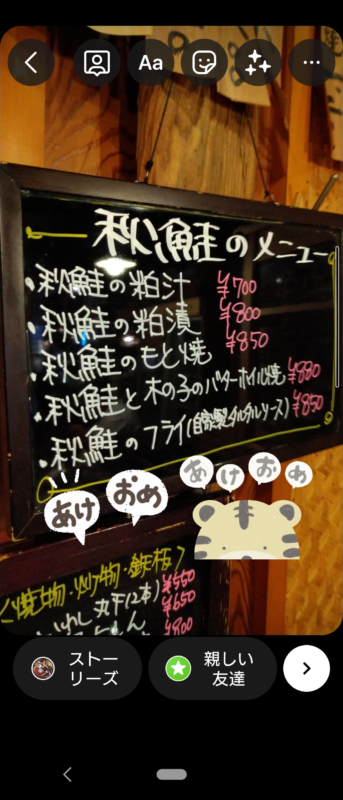 Aa
秋鮭のメニュー
・秋鮭の粕汁 ¥700
・秋鮭の粕漬 ¥800
・秋鮭のもと焼 ¥850
・秋鮭と木の子のバターホイル焼 ¥880
・秋鮭のフライ(自家製タルタルソース) ¥850
あけ
おめ
あ
け
お
め
<焼物・炒物・鉄板>
¥550
いわし丸干(2本) ¥650
¥800
ストーリーズ
親しい友達